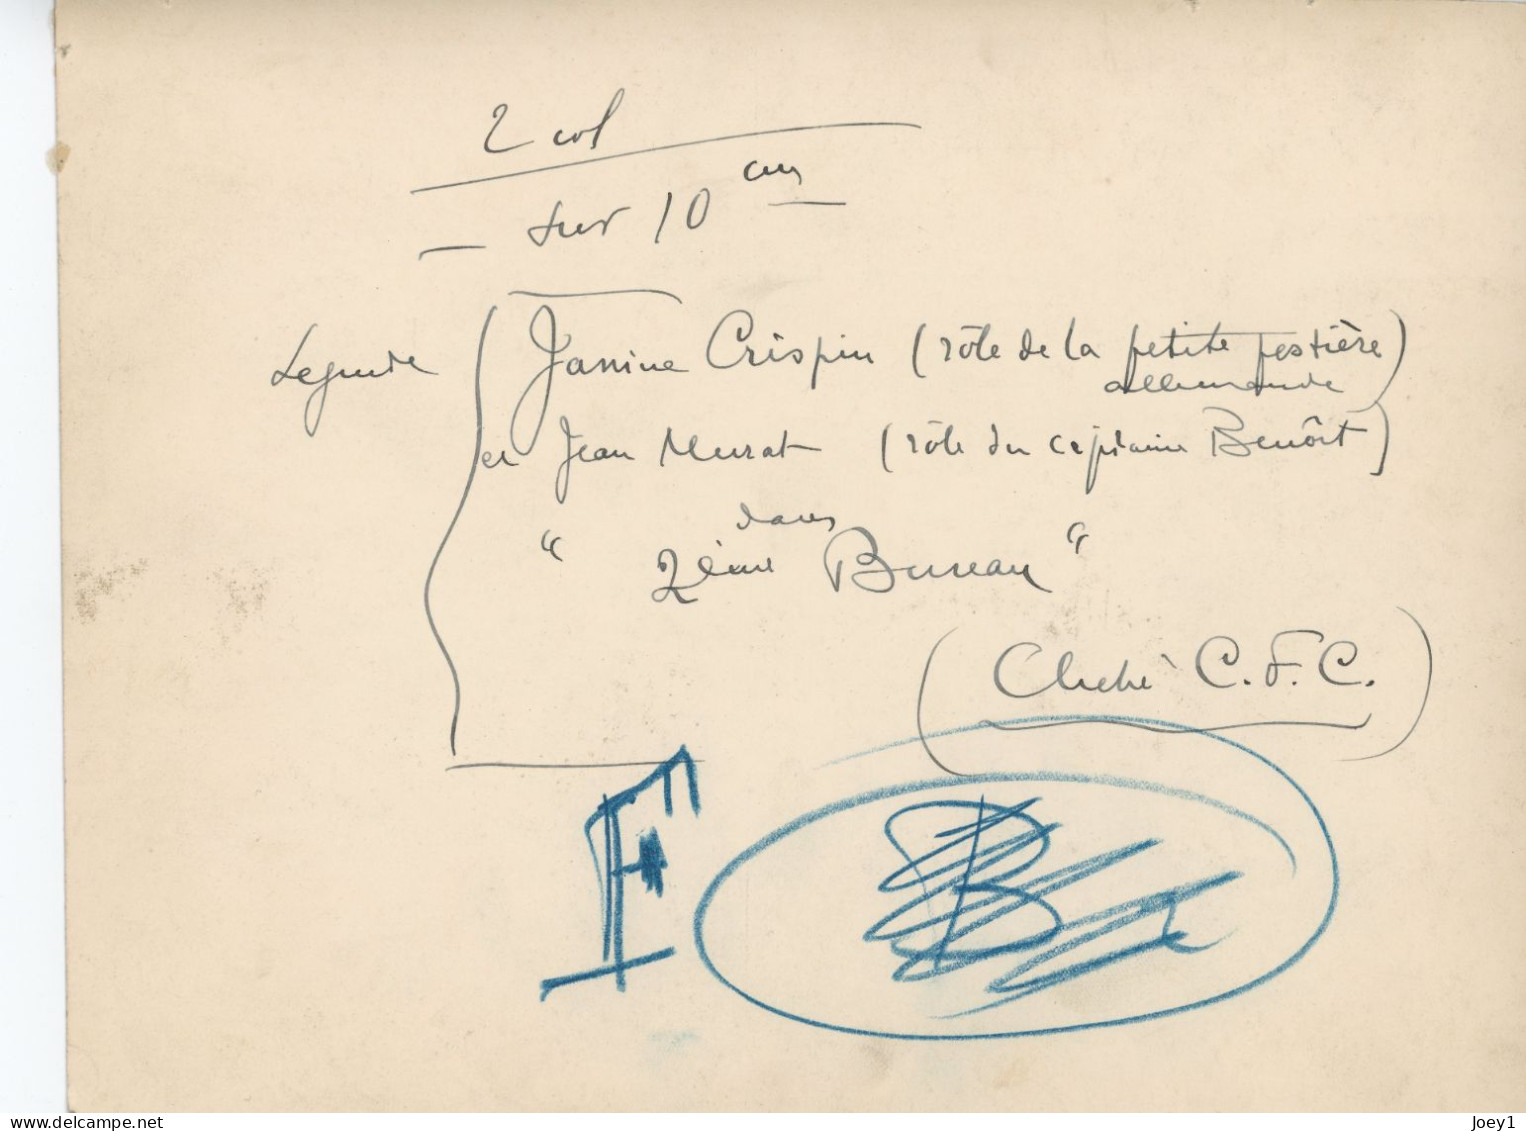 2 col
sur 10 cm
Legende
Janine Crispin (rôle de la petite postière
allemande)
et Jean Murat (rôle du capitaine Benoît)
dans
" 2ème Bureau "
(Cliché C.F.C.)
F
B
delcampe.net
Joey1